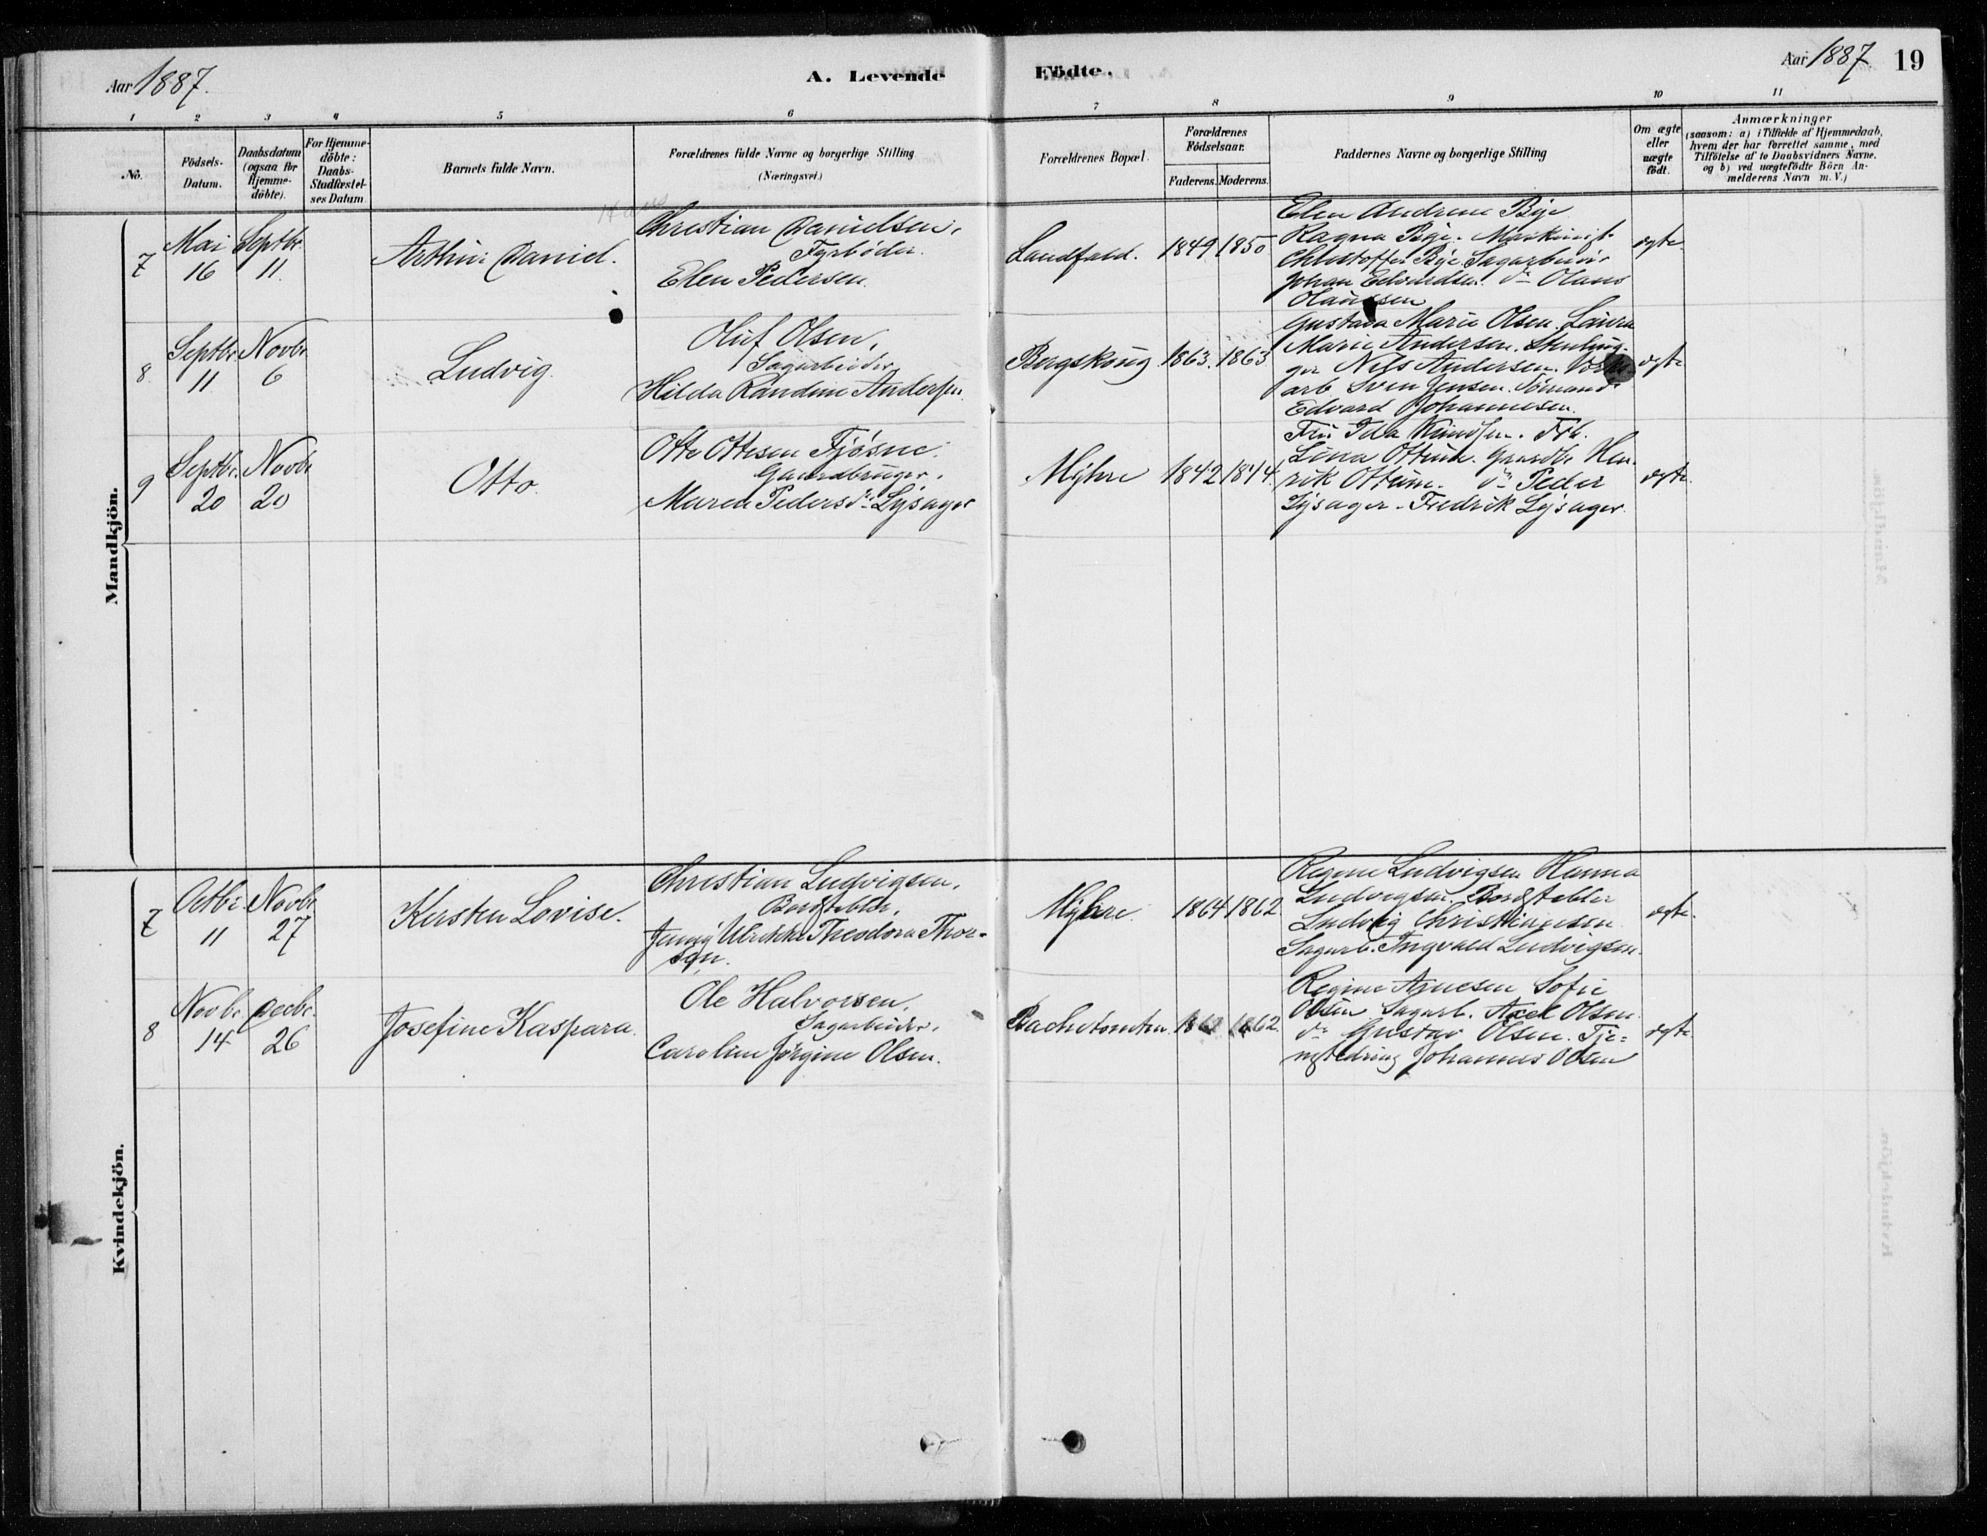 Aar 1887.
A. Levende
Födte.
Aar 1887
19
1
2
3
4
5
6
7
8
9
10
11
No.
Födsels-
Datum.
Daabsdatum
(ogsaa for
Hjemme-
döbte).
For Hjemme-
döbte:
Daabs-
Stadfæstel-
ses Datum.
Barnets fulde Navn.
Forældrenes fulde Navne og borgerlige Stilling
(Næringsvei.)
Forældrenes Bopæl.
Forældrenes
Födselsaar.
Faderens.
Moderens.
Faddernes Navne og borgerlige Stilling
Om ægte
eller
uægte
födt.
Anmærkninger
(saasom: a) i Tilfælde af Hjemmedaab,
hvem der har forrettet samme, med
Tilföielse af to Daabsvidners Navne.
og b) ved uægtefödte Börn An-
melderens Navn m. V.)
Mandkjön.
7
Mai
16
Septbr.
11.
Arthur Daniel.
Christian Danielsen,
Fyrbøder.
Elen Pedersen.
Landfald.
1849
1850
Elen Andrine Bye
Ragna Bye. Maskinist
Christoffer Bye. Sagarbeider
Johan Edvardsen. do Olaus
Olaussen
ægte.
8
Septbr.
11
Novbr.
6
Ludvig.
Oluf Olsen,
Sagarbeider
Hilda Randine Andersen.
Bergskoug
1863.
1863
Gustava Marie Olsen. Laura
Marie Andersen. Stenhug-
ger Nils Andersen.
arb. Sven Jensen. Sömand
Edvard Johannesen.
ægte
9
Septbr.
20
Novbr.
20
Otto.
Otto Ottesen Fjøsne.
Gaardbruger,
Maren Pedersdr. Lysager
Myhre
1842
1844
Fru Ida Knudsen. Frk.
Lina Ottum. Gaardbr. Hen-
rik Ottum. do Peder
Lysager. Fredrik Lysager.
ægte.
Kvindekjön.
7
Octbr.
11
Novbr.
27
Kirsten Lovise.
Christian Ludvigsen,
Bordstabler,
Jenny Ulrikke Theodora Thor-
sen.
Myhre.
1864
1862
Regine Ludvigsen Hanna
Ludvigsen. Bordstabler
Ludvig Christiansen
Sagarb. Ingvald Ludvigsen.
ægte.
8
Novbr.
14
Decbr.
26
Josefine Kaspara.
Ole Halvorsen,
Sagarbeider,
Caroline Jørgine Olsen.
Bachetomten.
1862
1862.
Regine Arnesen Sofie
Olsen Sagarb. Axel Olsen.
do Gustav Olsen. Tje-
nestedreng Johannes Olsen
ægte.